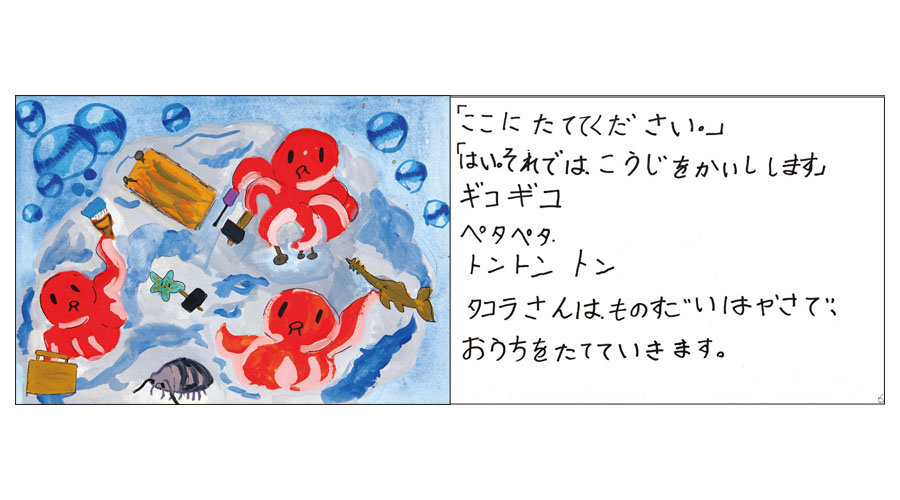 「ここに たててください。」
「はい。それでは、こうじをかいしします」
ギコギコ
ペタペタ.
トントン トン
タコラさんは、ものすごいはやさで、
おうちをたてていきます。